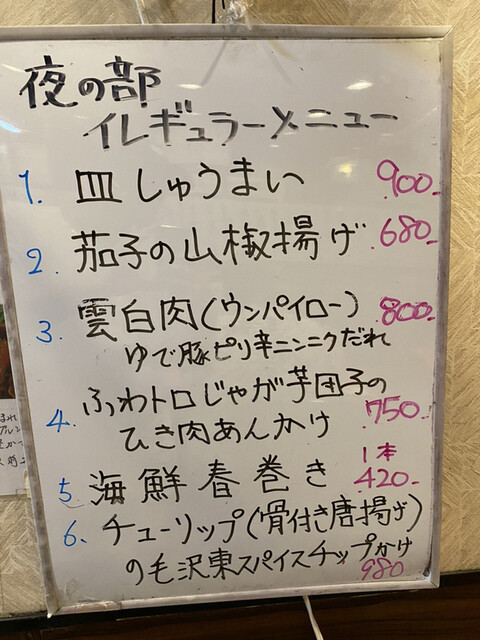 夜の部
イレギュラーメニュー
1. 皿しゅうまい 900-
2. 茄子の山椒揚げ 680-
3. 雲白肉(ウンパイロー) 800-
ゆで豚ピリ辛ニンニクだれ
4. ふわトロじゃが芋団子の
ひき肉あんかけ 750-
1本
5. 海鮮春巻き 420-
6. チューリップ(骨付き唐揚げ)
の毛沢東スパイスチップかけ
980